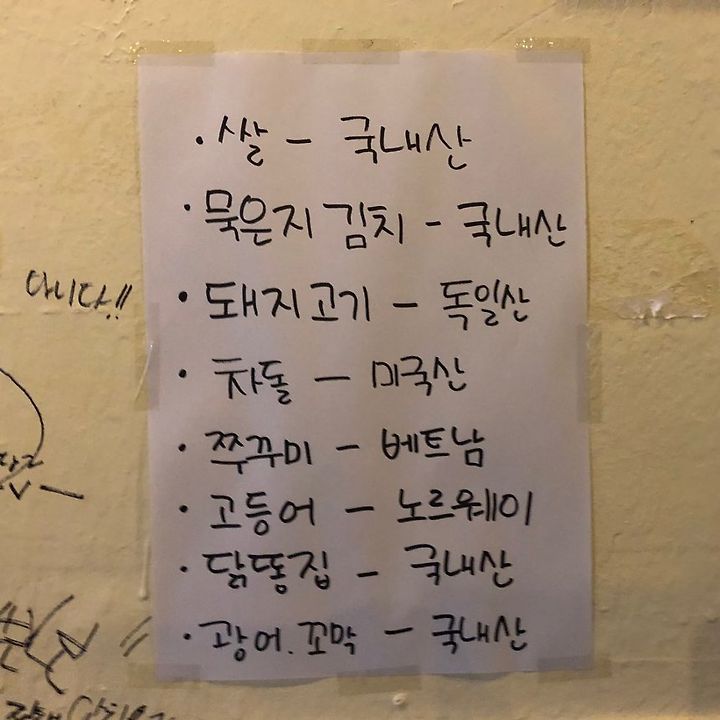 · 쌀 - 국내산
· 묵은지 김치 - 국내산
아니다!!
· 돼지고기 - 독일산
· 차돌 - 미국산
· 쭈꾸미 - 베트남
· 고등어 - 노르웨이
· 닭똥집 - 국내산
· 광어.꼬막 - 국내산